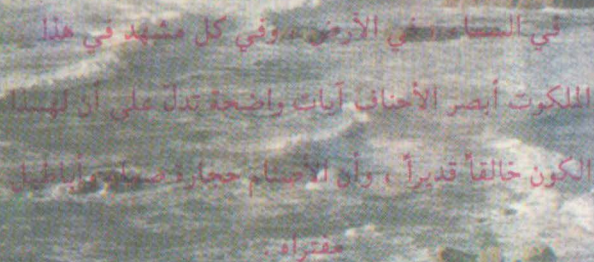 في السماء ، في الأرض ، وفي كل مشهد في هذا
الملكوت أبصر الأحناف آيات واضحة تدلّ على أن لهــذا
الكون خالقاً قديراً ، وأن الأصنام حجارة صماء وأباطيل
مفتراه .